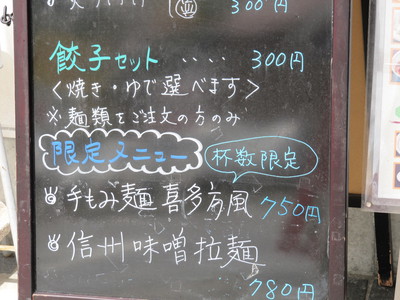 並 300円
餃子セット ‥‥ 300円
<焼き・ゆで選べます>
※麺類をご注文の方のみ
限定メニュー 杯数限定
手もみ麺 喜多方風 750円
信州味噌拉麺
780円